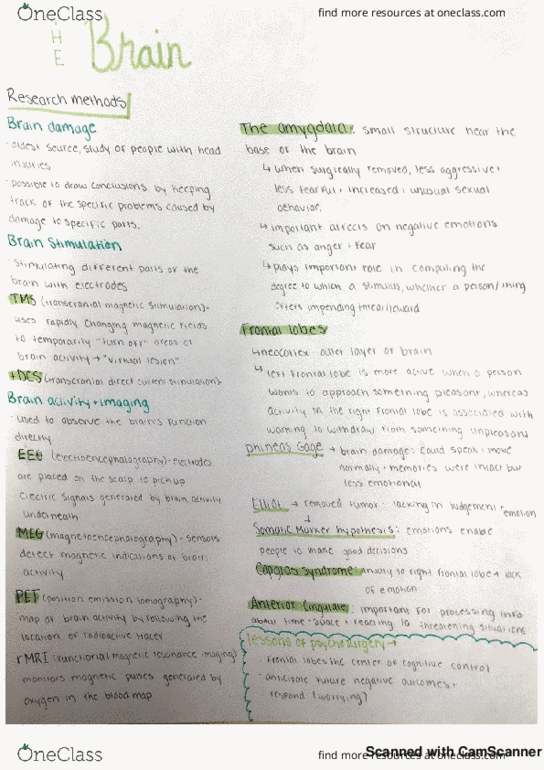 OneClass
find more resources at oneclass.com
THE
Brain
Research methods
Brain damage
·oldest source, study of people with head
injuries
·possible to draw conclusions by keeping
track of the specific problems caused by
damage to specific parts.
Brain Stimulation
·Stimulating different parts of the
brain with electrodes
TMS (transcranial magnetic stimulation)-
uses rapidly changing magnetic fields
to temporarily "turn off" areas of
brain activity → "virtual lesion"
tDCS (transcranial direct current stimulation)
Brain activity + imaging
·used to observe the brain's function
directly
EEG (electroencephalography)- electrodes
are placed on the scalp to pick up
electric signals generated by brain activity
underneath
MEG (magnetoencephalography)- sensors
detect magnetic indications of brain
activity
PET (position emission tomography)-
map of brain activity by following the
location of radioactive tracer
fMRI (functional magnetic resonance imaging)
monitors magnetic pulses generated by
oxygen in the blood map
The amygdala: small structure near the
base of the brain
↳ when surgically removed, less aggressive +
less fearful + increased + unusual sexual
behavior.
↳ important affects on negative emotions
such as anger + fear
↳ plays important role in computing the
degree to which a stimulus, whether a person/thing
offers impending threat/reward
Frontal lobes
↳ neocortex- outer layer of brain
↳ left frontal lobe is more active when a person
wants to approach something pleasant, whereas
activity in the right frontal lobe is associated with
wanting to withdraw from something unpleasant
Phineas Gage → brain damage: could speak + move
normally + memories were intact but
less emotional
Elliot → removed tumor- lacking in judgement + emotion
↓
Somatic Marker hypothesis: emotions enable
people to make good decisions
Capgras Syndrome: to right frontal lobe + lack
of emotion
Anterior Cingulate: important for processing info
about time + space + reacting to threatening situations
lessons of psychosurgery →
· frontal lobes the center of cognitive control
· anticipate future negative outcomes +
respond (worrying)
OneClass
find more resources at oneclass.com
Scanned with CamScanner